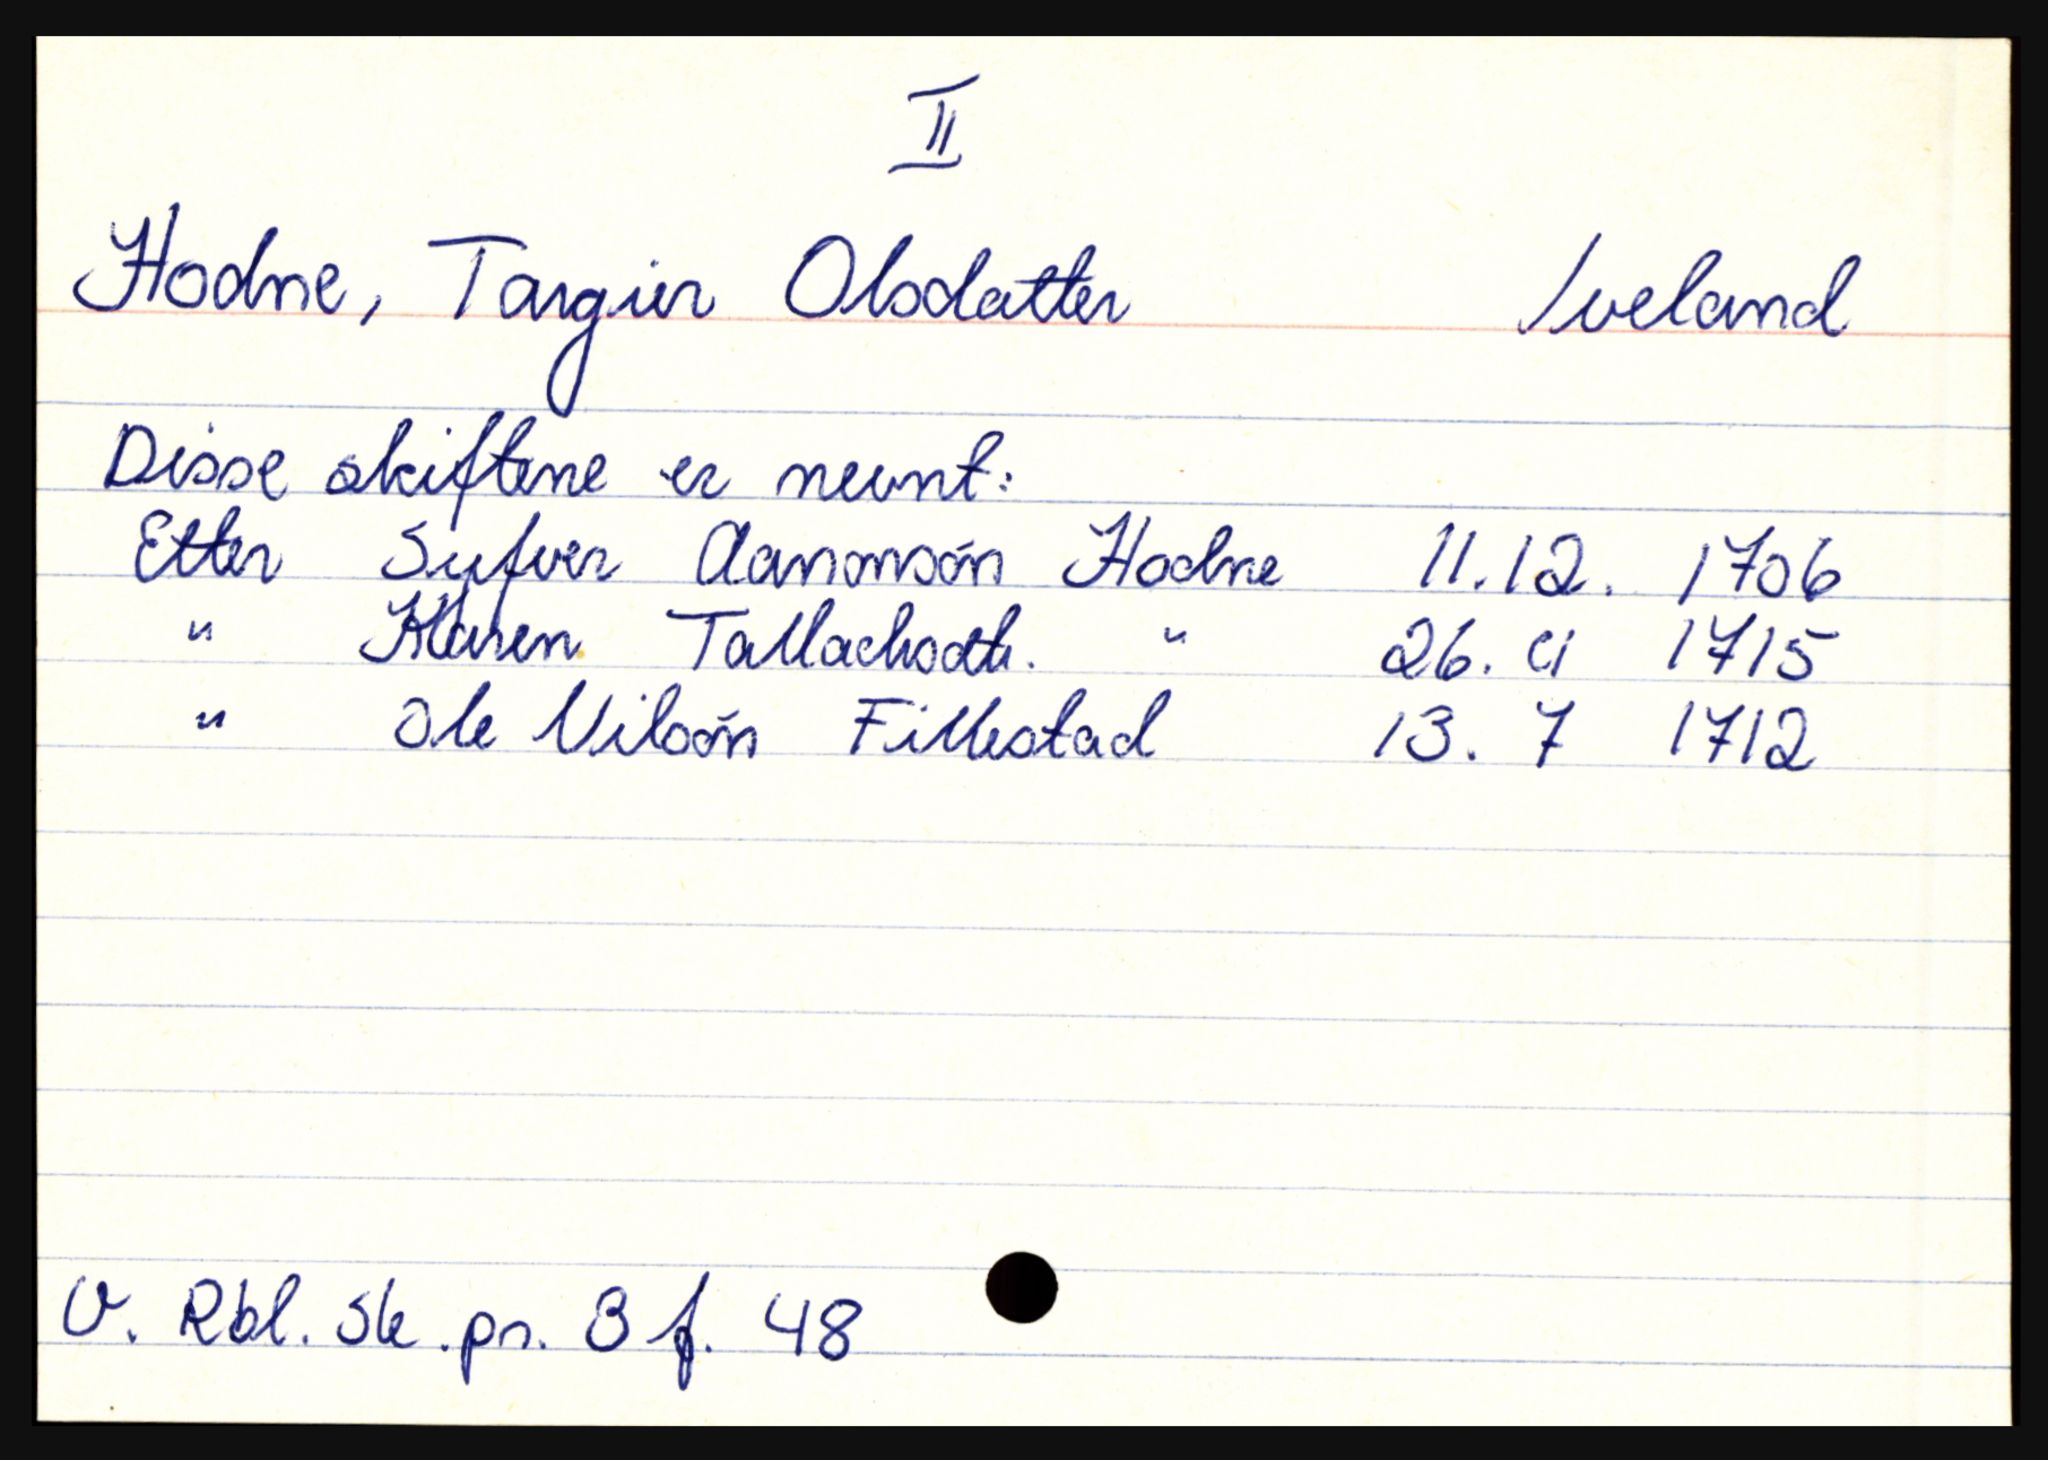 II
Hodne, Targier Olsdatter Iveland
Disse skiftene er nevnt:
Etter Syfver Aanonsøn Hodne 11.12. 1706
" Karen Tallachsdtr. " 26. 1715
" Ole Nilsøn Fillestad 13. 7 1712
V. Rbl. Sk.pr. 3 f. 48